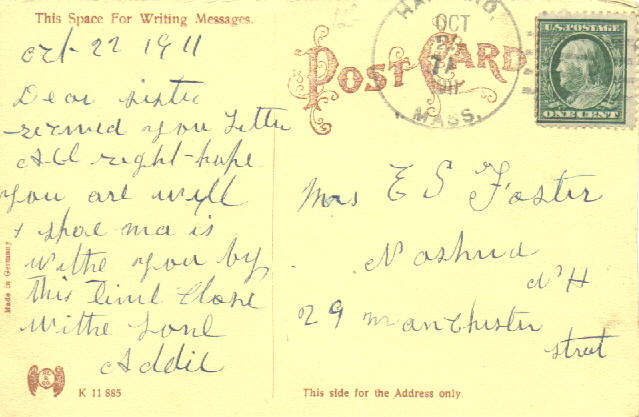 This Space For Writing Messages.
Oct- 22 1911
Dear sister
received you Letter
All right-hope
you are well
+ shoe ma is
withe you by
this time Close
withe Love
Addie
Made in Germany
K 11885
POST CARD
OCT
1911
MASS.
U.S. POSTAGE
ONE CENT
Mrs E S Foster
Nashua
N H
29 Manchester
street
This side for the Address only.